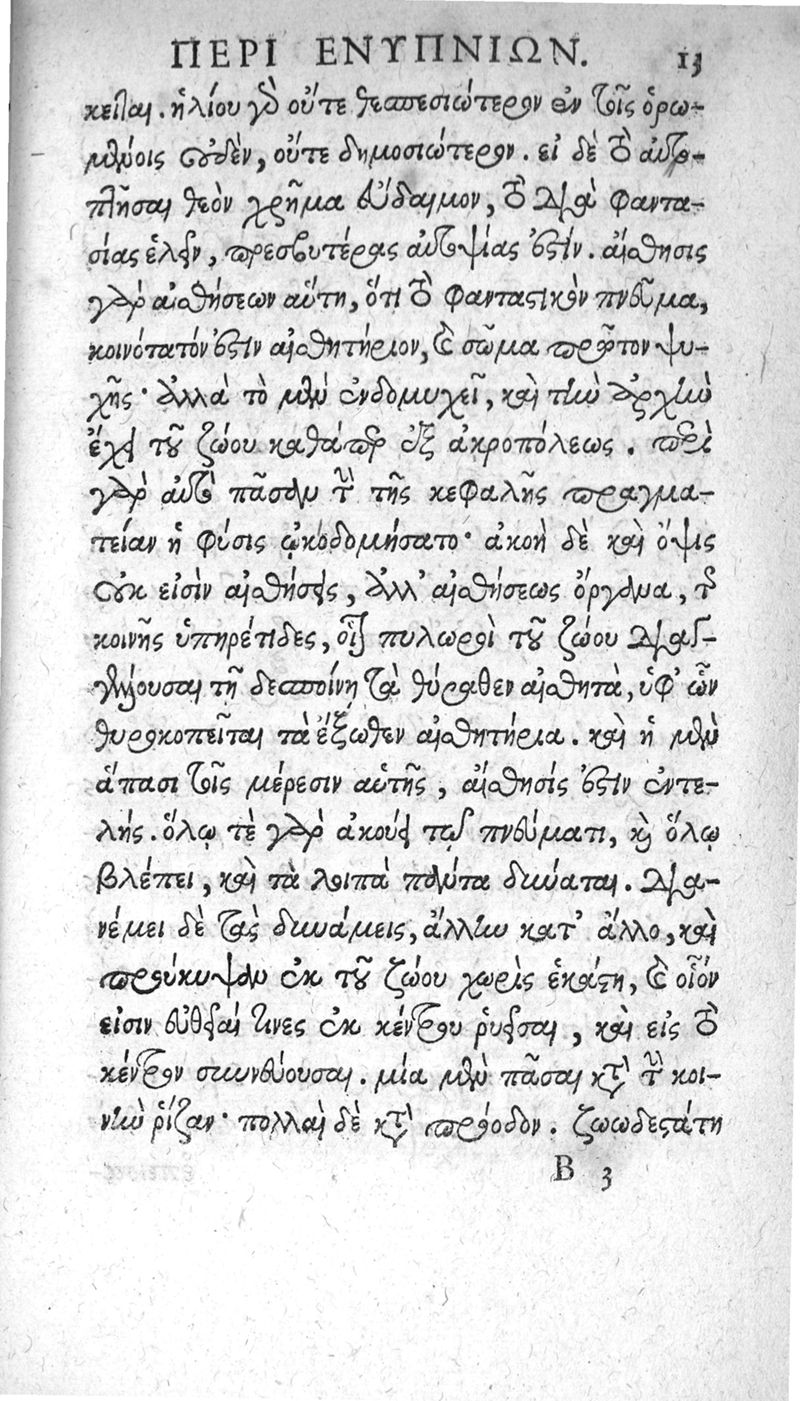 ΠΕΡΙ ΕΝΥΠΝΙΩΝ. 13
κειται. ἡλίου γὸ οὔτε θεσπεσιώτερον ἐν τοῖς ὁρω-
μένοις οὐδὲν, οὔτε δημοσιώτερον. εἰ δὲ τὸ αὐτο-
πλῆσαι θεὸν χρῆμα εὔδαιμον, τὸ διὰ φαντα-
σίας ἑλεῖν, πρεσβυτέρας αὐτοψίας ἐστίν. αἴσθησις
γὰρ αἰσθήσεων αὕτη, ὅτι τὸ φανταστικὸν πνεῦμα,
κοινότατόν ἐστιν αἰσθητήριον, καὶ σῶμα πρῶτον ψυ-
χῆς· ἀλλὰ τὸ μὲν ἐνδομυχεῖ, καὶ τὴν ἀρχὴν
ἔχει τοῦ ζώου καθάπερ ἐξ ἀκροπόλεως. περὶ
γὰρ αὐτὸ πᾶσαν τὴν τῆς κεφαλῆς πραγμα-
τείαν ἡ φύσις ᾠκοδομήσατο· ἀκοὴ δὲ καὶ ὄψις
οὐκ εἰσὶν αἰσθήσεις, ἀλλ' αἰσθήσεως ὄργανα, τῆς
κοινῆς ὑπηρέτιδες, οἷον πυλωροὶ τοῦ ζώου διαγ-
γέλλουσαι τῇ δεσποίνῃ τὰ θύραθεν αἰσθητὰ, ὑφ' ὧν
θυροκοπεῖται τὰ ἔξωθεν αἰσθητήρια. καὶ ἡ μὲν
ἅπασι τοῖς μέρεσιν αὑτῆς, αἴσθησίς ἐστιν ἐντε-
λής. ὅλῳ τὲ γὰρ ἀκούει τῷ πνεύματι, καὶ ὅλῳ
βλέπει, καὶ τὰ λοιπὰ πάντα δύναται. δια-
νέμει δὲ τὰς δυνάμεις, ἄλλην κατ' ἄλλο, καὶ
προύκυψαν ἐκ τοῦ ζώου χωρὶς ἑκάστη, καὶ οἷόν
εἰσιν εὐθεῖαί τινες ἐκ κέντρου ῥυεῖσαι, καὶ εἰς τὸ
κέντρον συννεύουσαι. μία μὲν πᾶσαι κατὰ τὴν κοι-
νὴν ῥίζαν· πολλαὶ δὲ κατὰ πρόοδον. ζωωδεστάτη
B 3